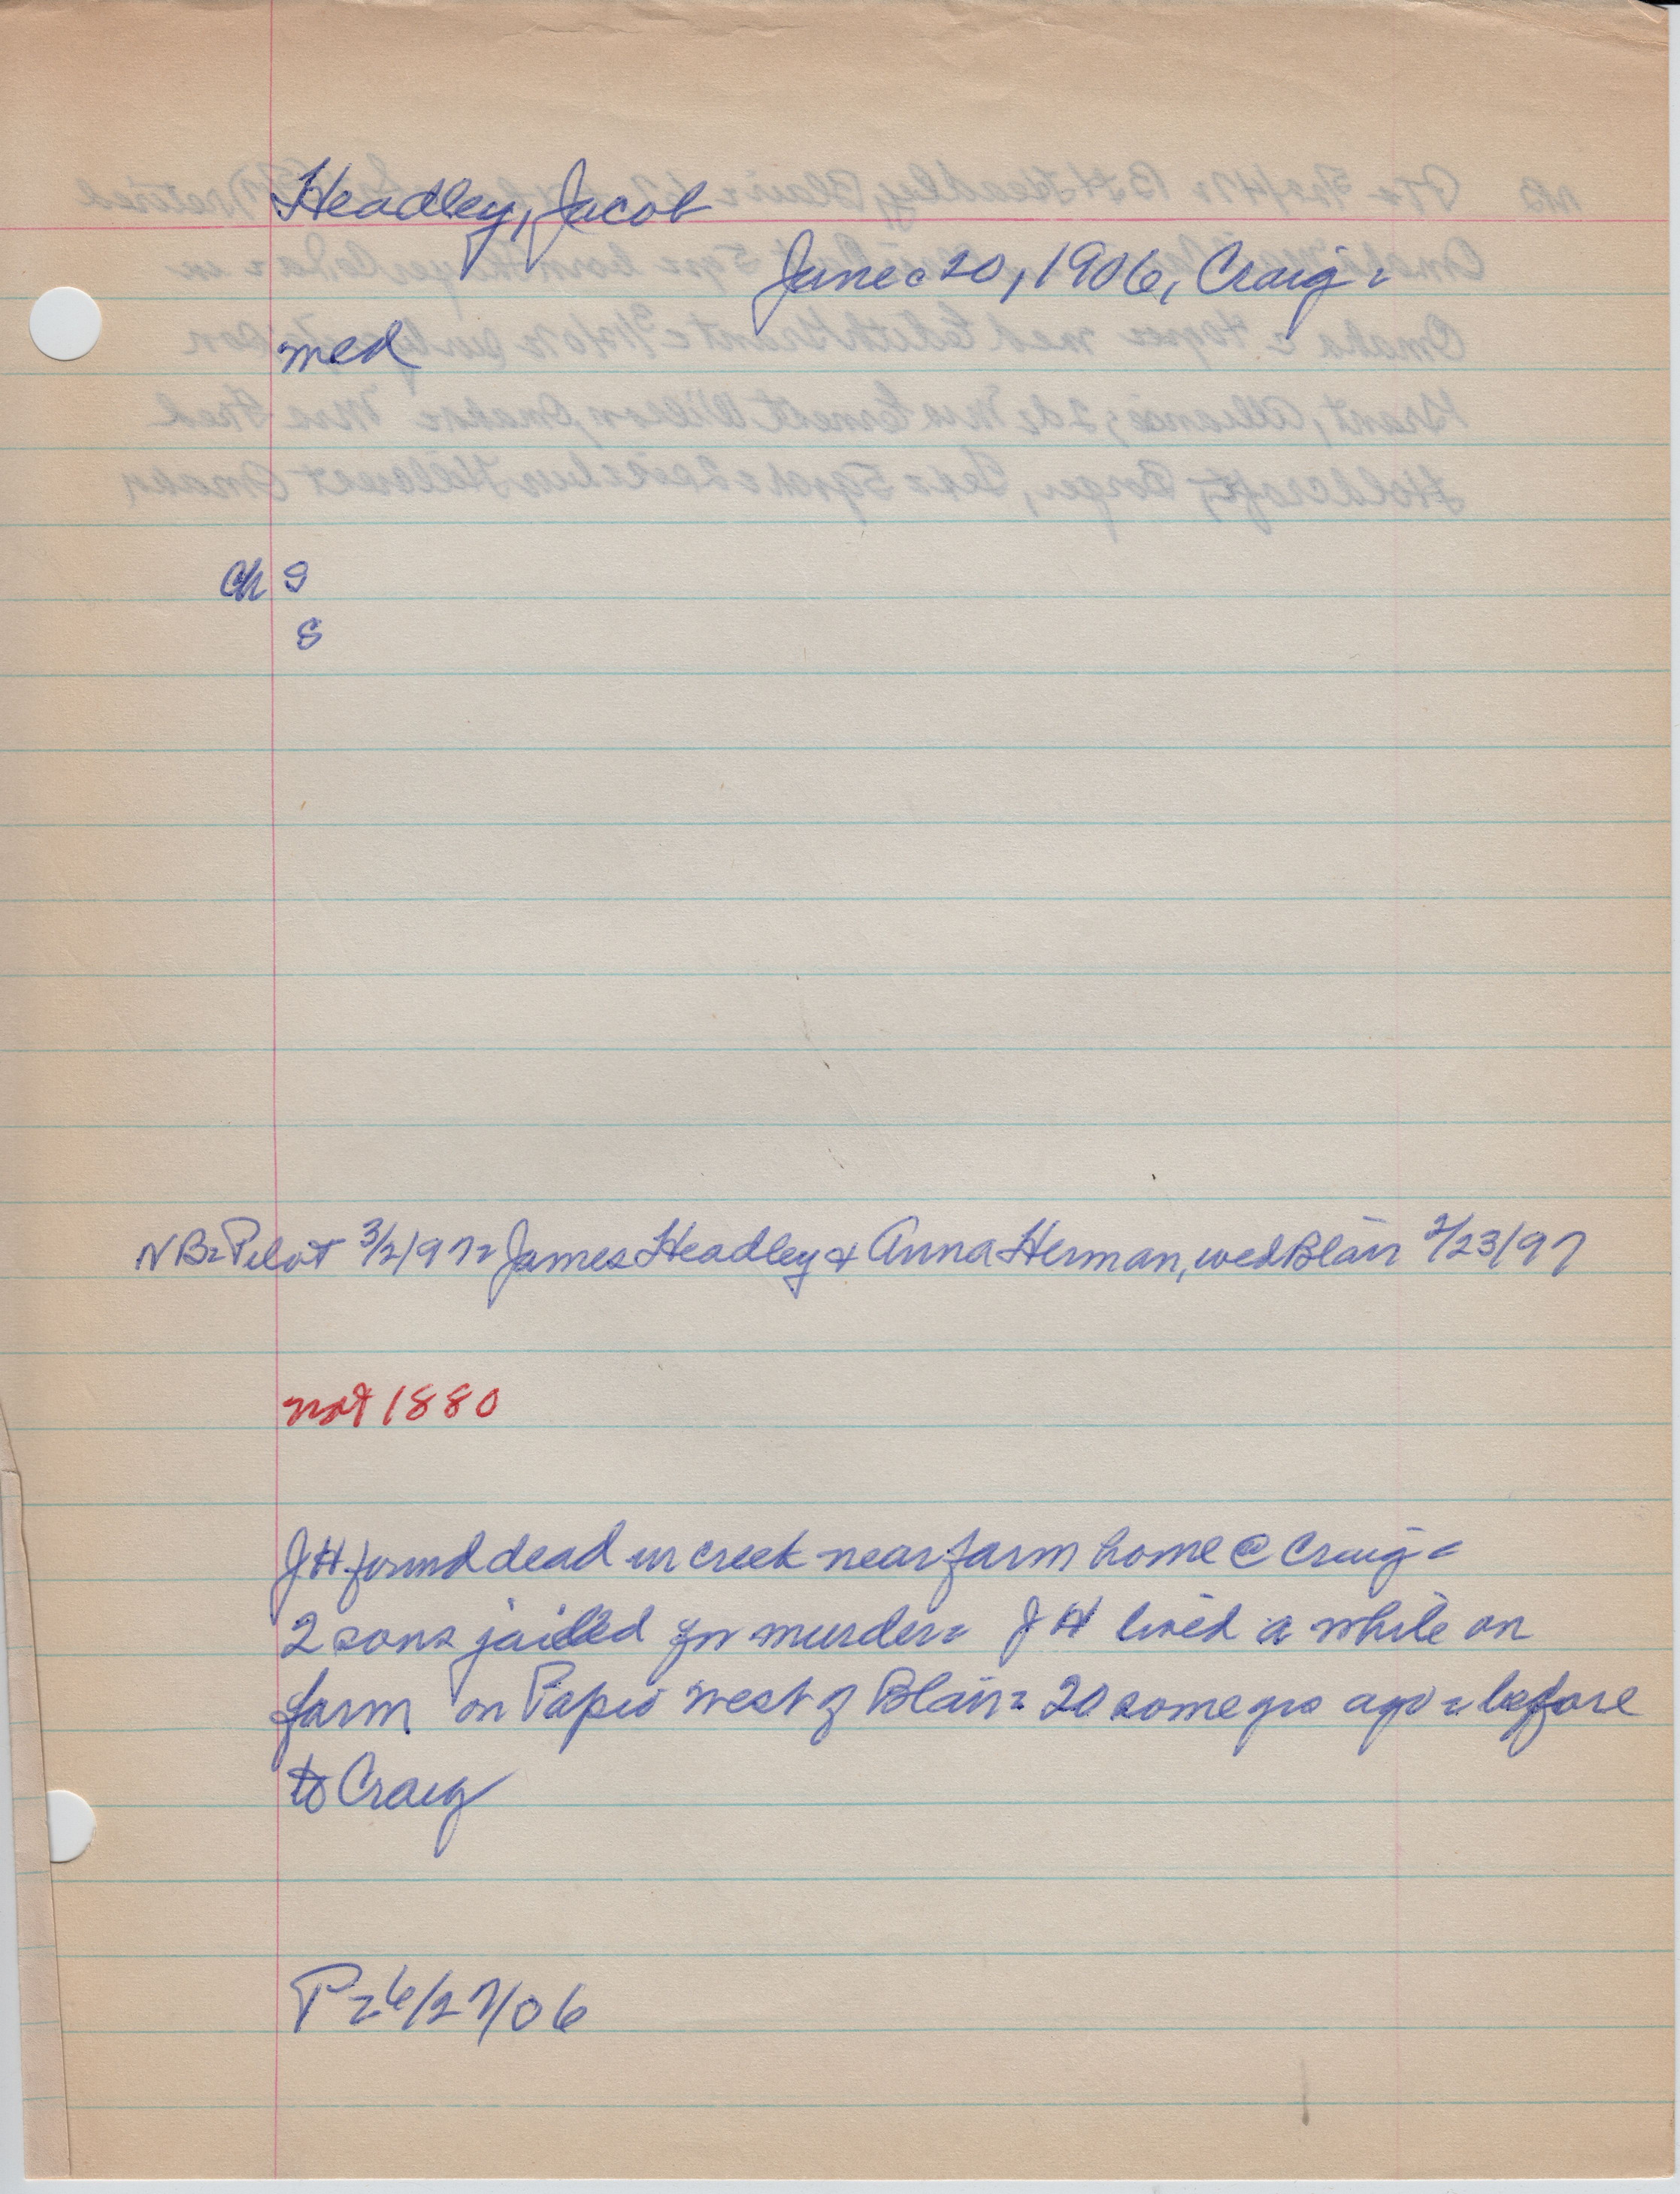 Headley, Jacob
June 20, 1906, Craig =
med
Ch S
S
NB = Pilot 3/2/97 = James Headley & Anna Herman, wed Blair 2/23/97
not 1880
JH found dead in creek near farm home @ Craig =
2 sons jailed for murder = JH lived a while on
farm on Papio west of Blair = 20 some yrs ago = before
to Craig
P = 6/27/06